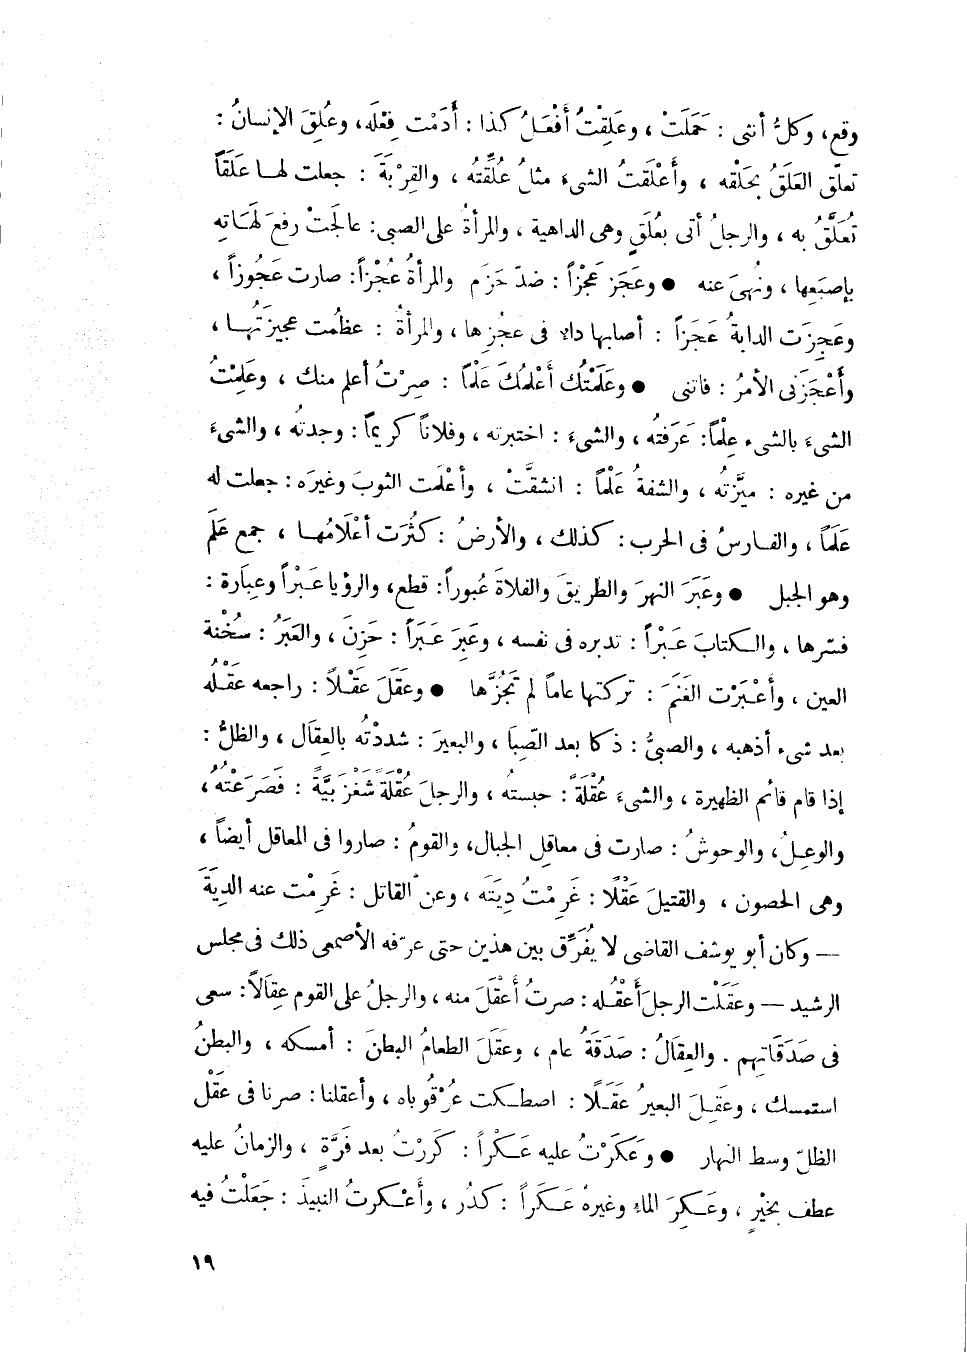 وقع، وكلُّ أنثى : حَمَلَتْ ، وعَلِقْتُ أَفْعَلُ كذا : أَدَمْت فِعْلَه، وعُلِقَ الإنسانُ :
تعلّق العَلَقُ بحَلْقه ، وأَعْلَقتُ الشىءَ مثلُ عُلِّقتُه ، والقِرْبَةَ : جعلت لهـا عَلَقاً
تُعَلَّقُ به ، والرجلُ أتى بعُلَقٍ وهى الداهية ، والمرأةُ على الصبى : عالجَتْ رفعَ لَهَاتِه
بإصبَعِها ، ونُهِىَ عنه ● وعَجَز عَجْزاً : ضدّ حَزَم والمرأةُ عُجْزاً : صارت عَجُوزاً ،
وعَجِزَت الدابةُ عَجَزاً : أصابها داء فى عجُزِها ، والمرأةُ : عظمُت عجيزَتُهـا ،
وأَعْجَزَنى الأمرُ : فاتنى ● وعَلَمْتُك أَعْلُمُكَ عَلْماً : صِرْتُ أعلم منك ، وعَلِمْتُ
الشىءَ بالشىء عِلْماً: عَرَفتُه ، والشىءَ : اختبرته ، وفلاناً كريماً : وجدتُه ، والشىءَ
من غيره : ميَّزتُه ، والشفةُ عَلْماً : انشقَّتْ ، وأعْلَمت الثوبَ وغيرَه : جعلت له
عَلَماً ، والفـارسُ فى الحرب : كذلك ، والأرضُ : كثُرَت أعْلَامُهـا ، جمع عَلَم
وهو الجبل ● وعَبَرَ النهرَ والطريقَ والفلاةَ عُبوراً : قطع، والرؤيا عَـبْراً وعِبَارة :
فسّرها ، والـكتابَ عَـبْراً : تدبره فى نفسه ، وعَبِرَ عَـبَراً : حَزِنَ ، والعَبَرُ : سُخْنة
العين ، وأَعْـبَرْت الغَنَمَ : تركتها عاماً لم تَجُزَّها ● وعَقَلَ عَقْـلاً : راجعه عَقْـلُه
بعد شىء أذهبه ، والصبىُّ : ذكا بعد الصِّبَا ، والبعيرَ : شددْتُه بالعِقَال ، والظلُّ :
إذا قام قائم الظهيرة ، والشىءَ عُقْلَةً : حبستُه ، والرجلَ عُقْلَةً شَغْزَبيَّةً : فَصَرَعْتُه،
والوعِـلُ، والوحوشُ : صارت فى معاقلِ الجبال، والقومُ : صاروا فى المعاقل أيضاً ،
وهى الحصون ، والقتيلَ عَقْلًا : غَرِمْتُ دِيَتَه ، وعن القاتل : غَرِمْت عنه الدِيَةَ
— وكان أبو يوسُف القاضى لا يُفَرِّق بين هذين حتى عرّفه الأصمعى ذلك فى مجلس
الرشيد — وعَقَلْت الرجلَ أَعْقُـله : صرتُ أَعْقَلَ منه ، والرجلُ على القوم عِقالاً : سعى
فى صَدَقَاتِهم . والعِقالُ : صَدَقَةُ عام ، وعَقَلَ الطعامُ البطنَ : أمسكه ، والبطنُ
استمسك ، وعَقِـلَ البعيرُ عَقَـلًا : اصطـكت عُرْقُوباه ، وأعقلنا : صرنا فى عَقْل
الظلّ وسط النهار ● وعَكَرْتُ عليه عَـكْراً : كَرَرْتُ بعد فَرَّةٍ ، والزمانُ عليه
عطف بخيْرٍ ، وعَـكِرَ الماءُ وغيرهُ عَـكَراً : كدُر ، وأَعْـكرتُ النبيذَ : جَعَلْتُ فيه
١٩